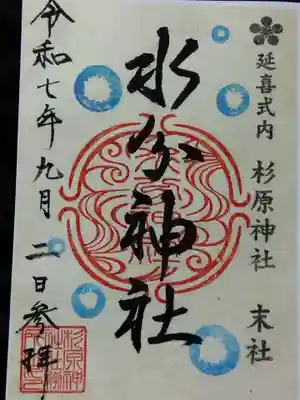 延喜式内 杉原神社 末社
水分神社
令和七年九月二日参拝